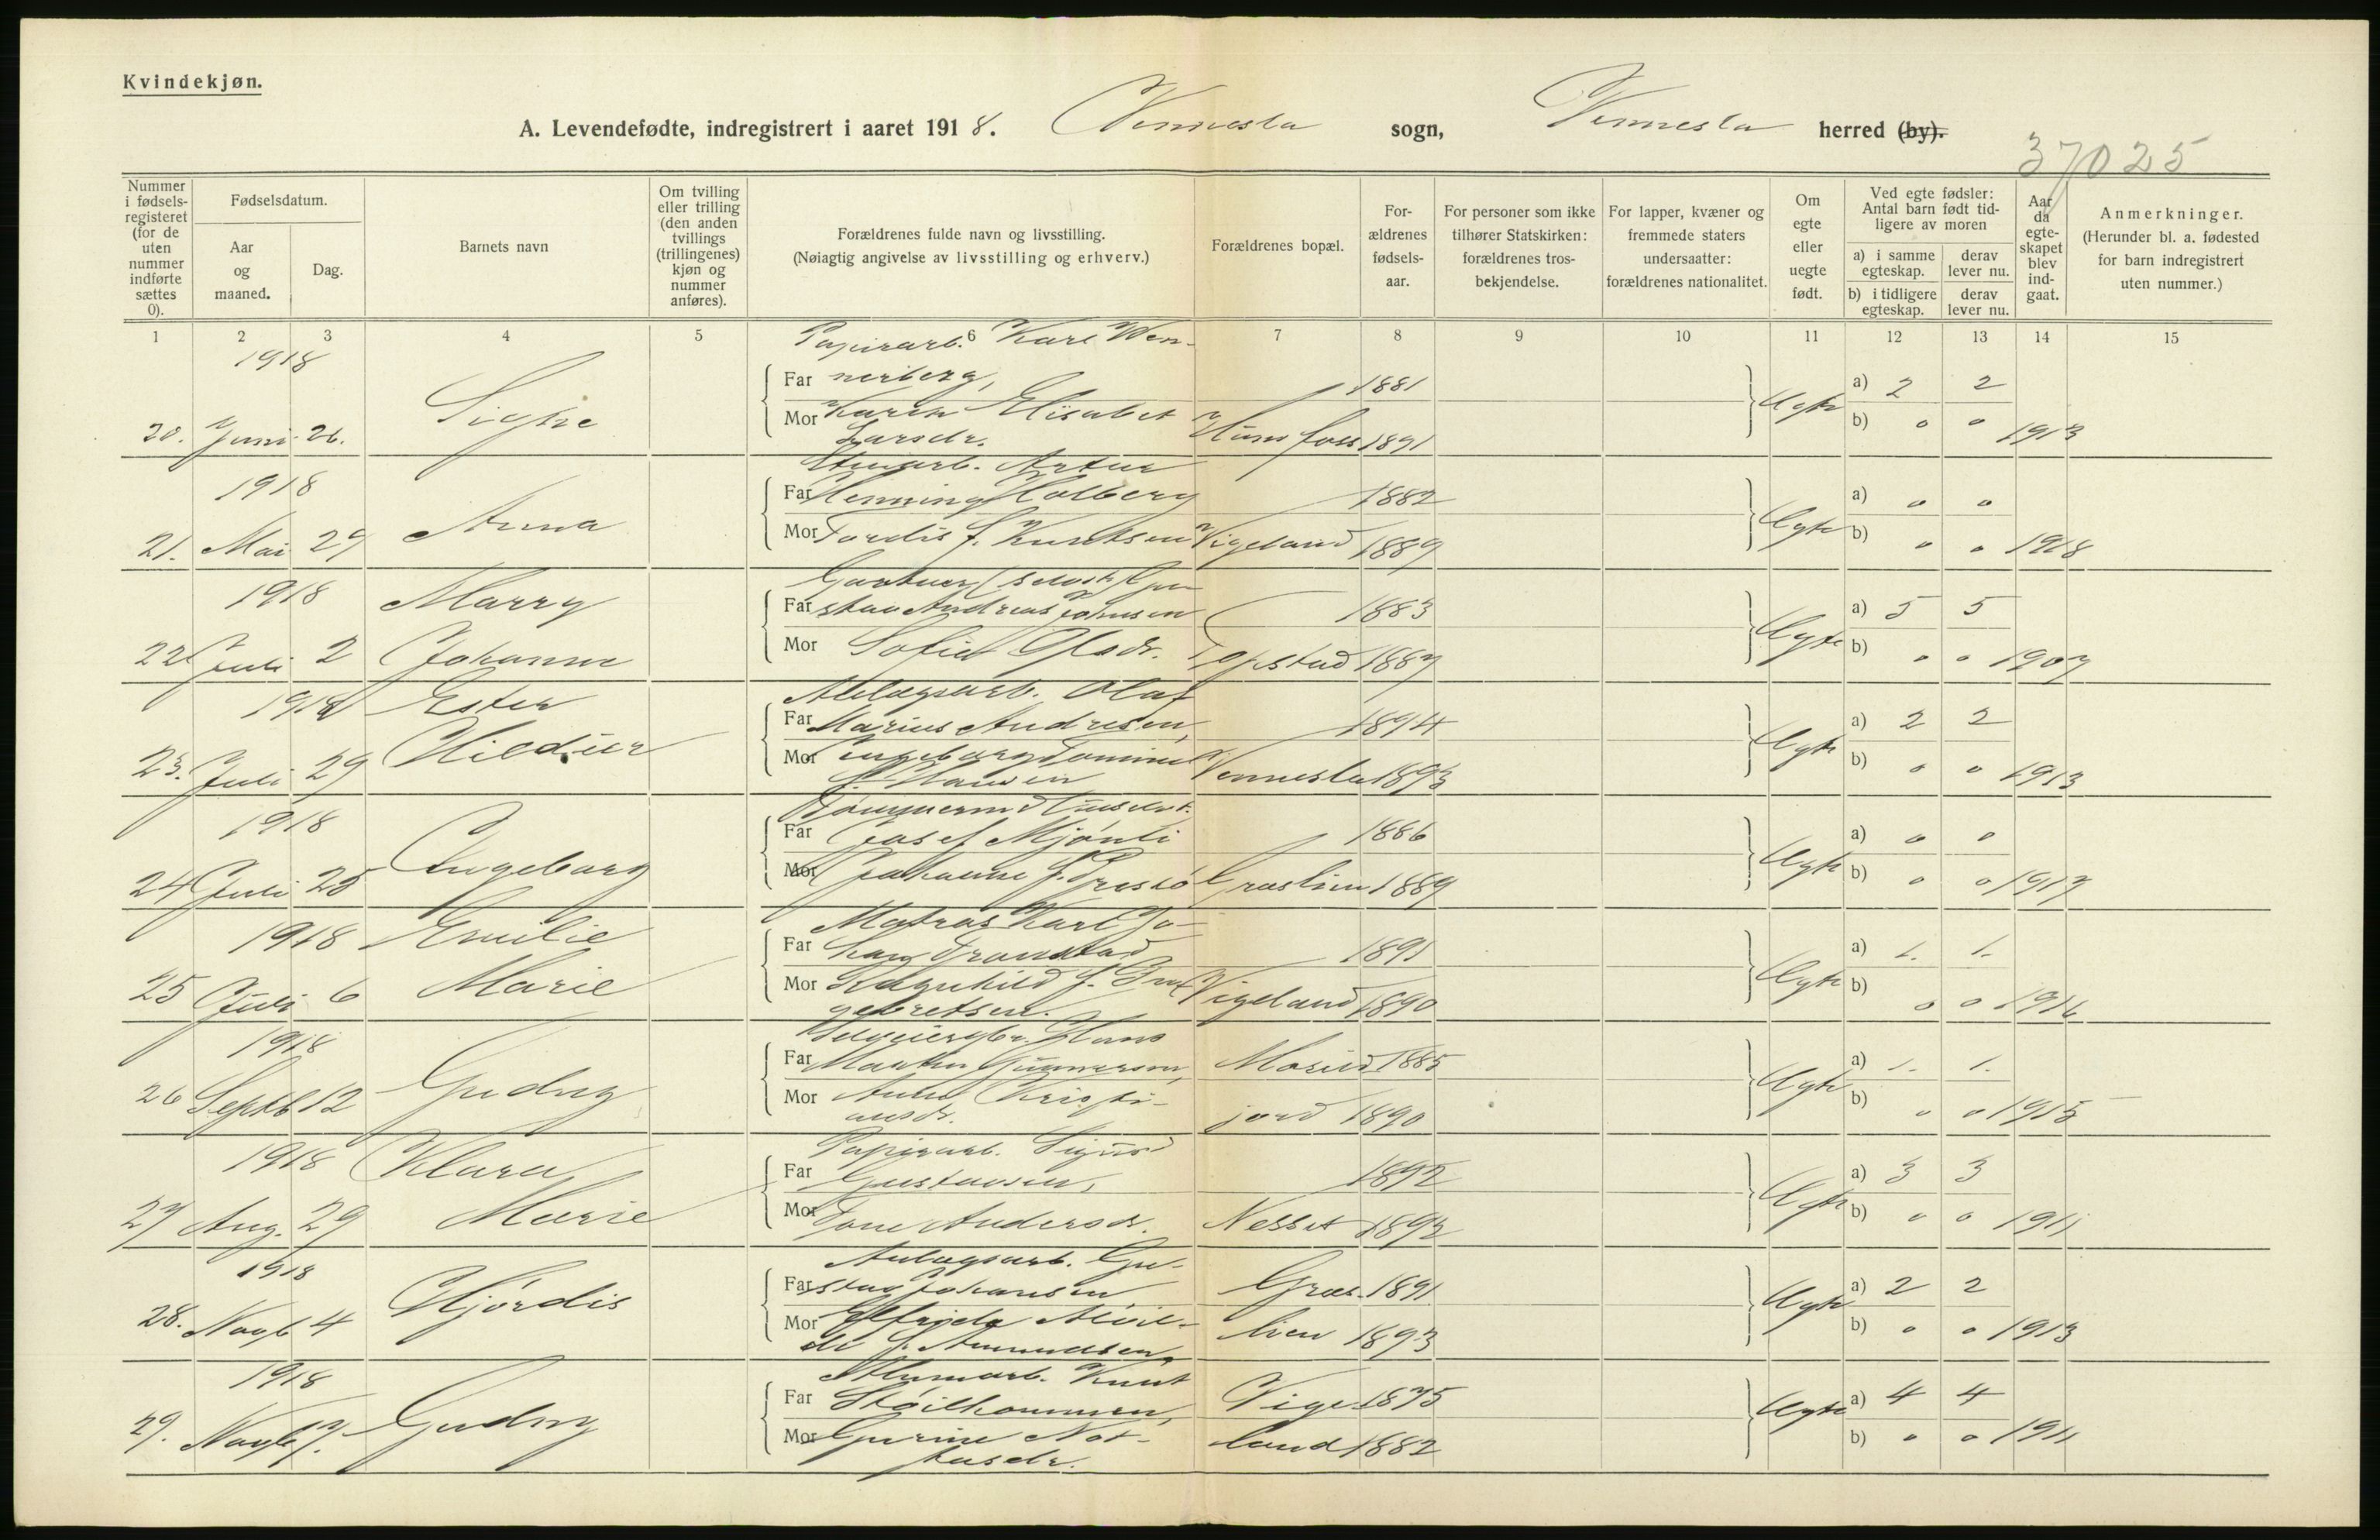 Kvindekjøn.
A. Levendefødte, indregistrert i aaret 1918. Vennesla sogn, Vennesla herred (by).
37025
Nummer i fødselsregisteret (for de uten nummer indførte sættes 0).
Fødselsdatum.
Aar og maaned.
Dag.
Barnets navn
Om tvilling eller trilling (den anden tvillings (trillingenes) kjøn og nummer anføres).
Forældrenes fulde navn og livsstilling.
(Nøiagtig angivelse av livsstilling og erhverv.)
Forældrenes bopæl.
Forældrenes fødselsaar.
For personer som ikke tilhører Statskirken: forældrenes trosbekjendelse.
For lapper, kvæner og fremmede staters undersaatter: forældrenes nationalitet.
Om egte eller uegte født.
Ved egte fødsler: Antal barn født tidligere av moren
a) i samme egteskap.
derav lever nu.
b) i tidligere egteskap.
derav lever nu.
Aar da egteskapet blev indgaat.
Anmerkninger.
(Herunder bl. a. fødested for barn indregistrert uten nummer.)
1 2 3 4 5 6 7 8 9 10 11 12 13 14 15
1918 Papirarb. Karl Wen-
Far nerberg, 1881 a) 2 2
20. Juni 26. Signe Mor Karen Elisabet Hunsfoss 1891 Egte b) " " 1913
Larsdr.
1918 Artur
Far Henning Holberg 1882 a) " "
21. Mai 29 Anna Mor Tordis f. Knutsen Vigeland 1889 Egte b) " " 1918
1918 Marry Gartner (selvst) Gu-
Far stav Andreas Johnsen 1883 a) 5 5
22 Juli 2 Johanne Mor Sofie Olsdr. 1887 Egte b) " " 1907
1918 Ester Anlægsarb. Olaf
Far Marius Andresen, 1894 a) 2 2
23. Juli 29 Hildur Mor Ingeborg Vennesla 1893 Egte b) " " 1913
f. Hansen
1918 Tømmerm.
Far Josef Mjånli 1886 a) " "
24 Juli 25 Ingeborg Mor Johanne f. Graslien 1889 Egte b) " " 1917
1918 Emilie Matros Karl Jo-
Far han Tronstad 1891 a) 1. 1.
25 Juli 6 Marie Mor Ragnhild f. Vigeland 1890 Egte b) " " 1916
1918 Hans
Far Martin Gunnarson, Moseid 1885 a) 1. 1.
26 Septb 12 Gudny Mor Anna Kristi- jord 1890 Egte b) " " 1915
ansdr.
1918 Klara Papirarb. Sigurd
Far Gustavsen, 1892 a) 3 3
27 Aug. 29 Marie Mor Tone Andersdr. Nesset 1892 Egte b) " " 1911
1918 Anlægsarb. Gu-
Far stav Johansen Gras- 1891 a) 2 2
28. Novb 4 Hjördis Mor Elfrida Alvil- lien 1893 Egte b) " " 1913
de f. Amundsen,
1918 Knut
Far Vige- 1875 a) 4 4
29. Novb 7. Gudny Mor Gurine Not- land 1882 Egte b) " " 1911
tusdr.